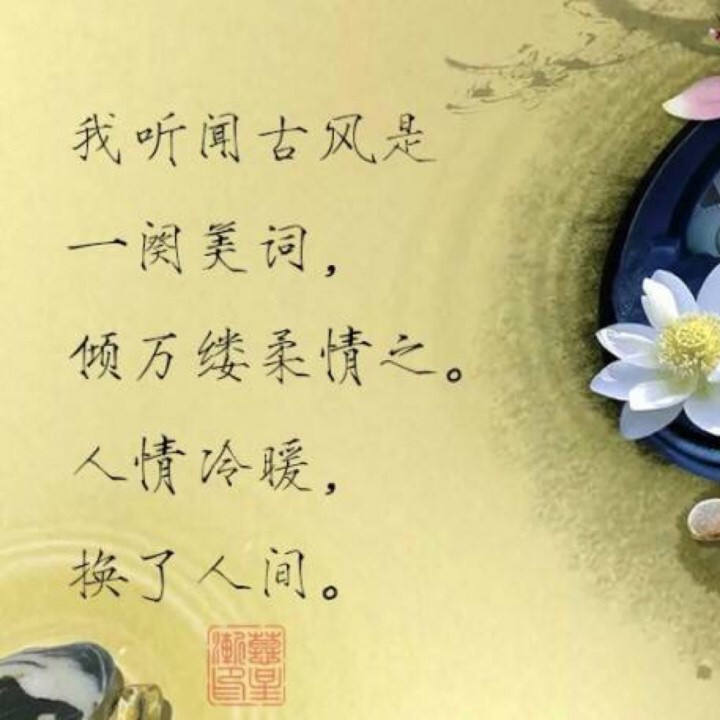 我听闻古风是
一阕美词，
倾万缕柔情之。
人情冷暖，
换了人间。